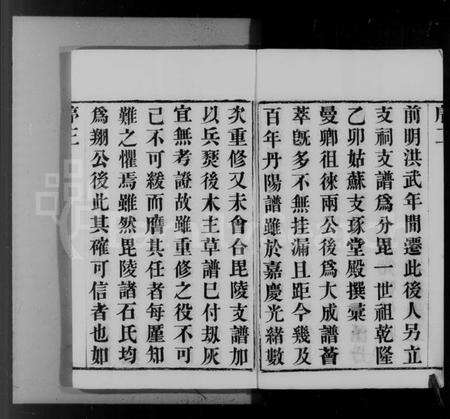 序二
前明洪武年間遷此後人另立
支祠支譜爲分毘一世祖乾隆
乙卯姑蘇支琢堂殿撰彙
曼卿徂徠兩公後爲大成譜薈
萃旣多不無挂漏且距今幾及
百年丹陽譜雖於嘉慶光緒數
次重修又未會合毘陵支譜加
以兵燹後木主草譜巳付刼灰
宜無考證故雖重修之役不可
己不可緩而膺其任者每厪知
難之懼焉雖然毘陵諸石氏均
爲翔公後此其確可信者也如
序三